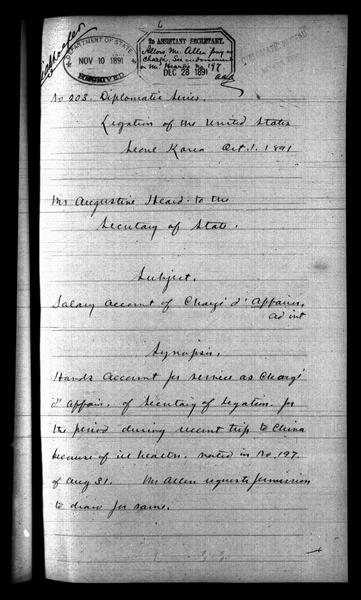 DEPARTMENT OF STATE
NOV 10 1891
RECEIVED
ASSISTANT SECRETARY.
Allow Mr. Allen pay as
Chargé. See endorsement
on Mr. Heard's No. 197
DEC 28 1891
No 203. Diplomatic Series.
Legation of the United States
Seoul Korea Oct. 1. 1891
Mr Augustine Heard. to the
Secretary of State.
Subject.
Salary account of Chargé d'Affaires,
ad int
Synopsis.
Hands account for service as Chargé
d'Affair. of Secretary of Legation. for
the period during recent trip to China
because of ill health. noted in No. 197.
of Aug 31. Mr Allen requests permission
to draw for same.